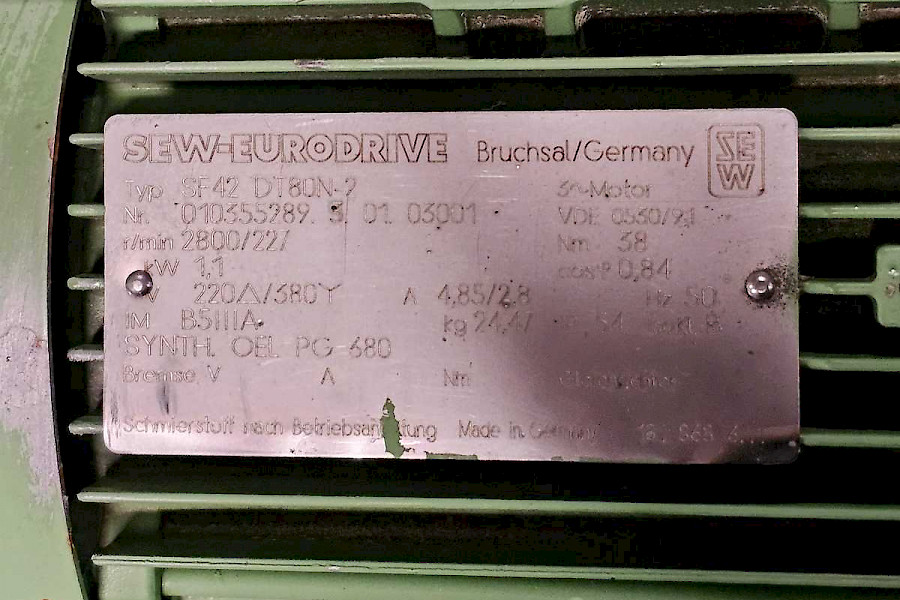 SEW-EURODRIVE Bruchsal/Germany SEW
Typ SF42 DT80N-2 3~Motor
Nr. 010355289. 3. 01 03001 VDE 0530/
r/min 2800/227 Nm 38
kW 1,1 cosφ 0,84
V 220△/380Y A 4,85/2,8 Hz 50
IM B5IIIA kg 24,47 54 B
SYNTH. OEL PG 680
Bremse V A Nm
Schmierstoff nach Made in Germany